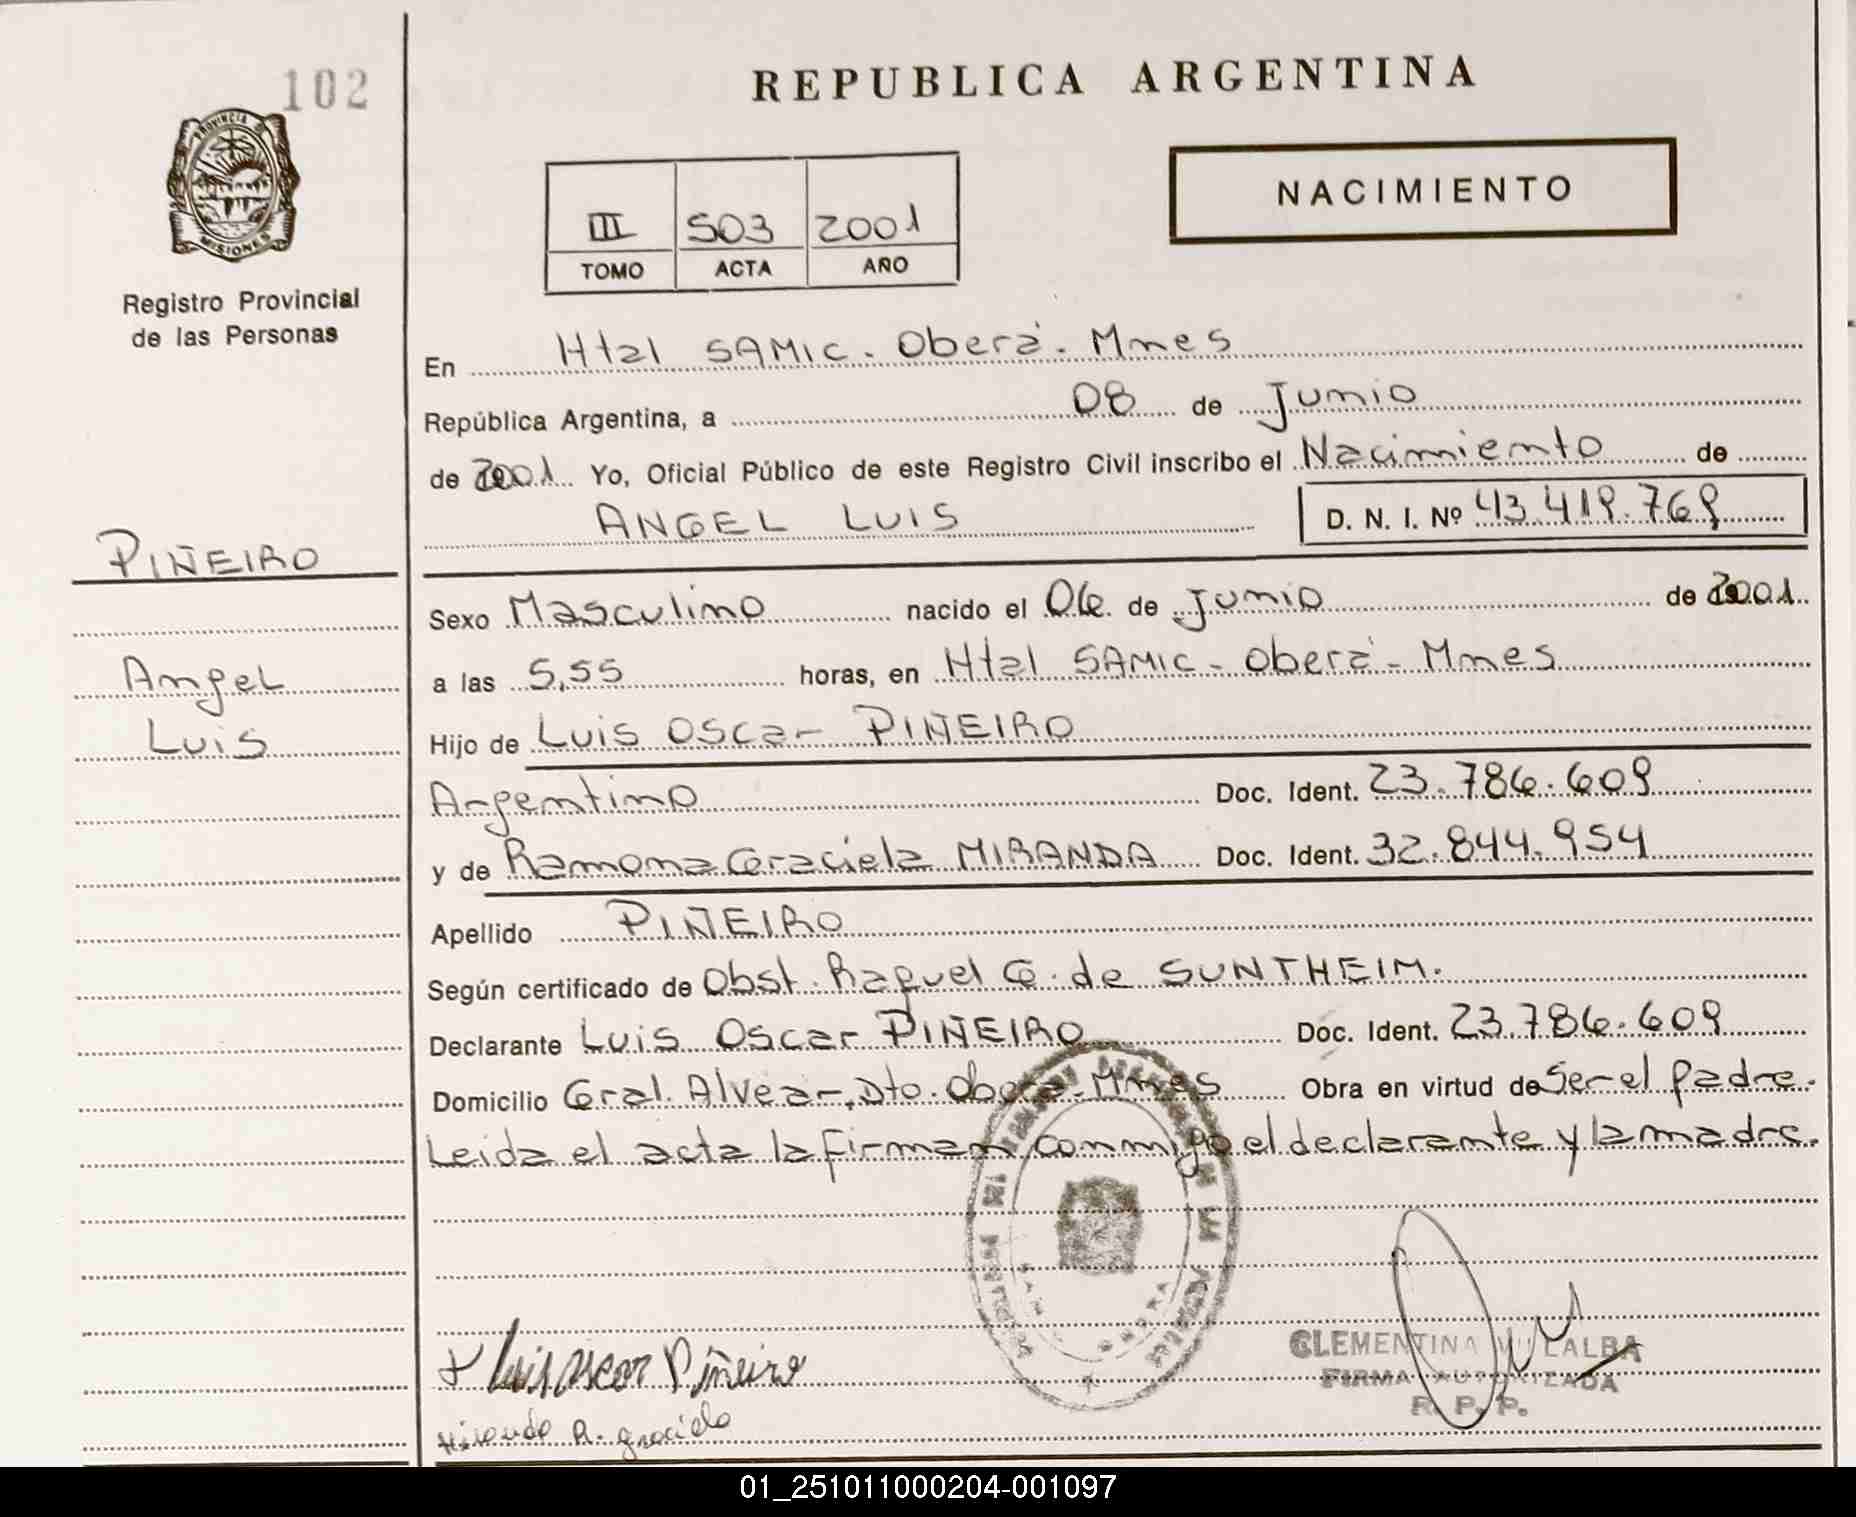 102
REPUBLICA ARGENTINA
PROVINCIA DE
MISIONES
NACIMIENTO
III 503 2001
TOMO ACTA AÑO
Registro Provincial
de las Personas
En Htal SAMIC. Oberá. Mnes
República Argentina, a 08 de Junio
de 2001 Yo, Oficial Público de este Registro Civil inscribo el Nacimiento de
ANGEL LUIS D. N. I. Nº 43.419.769
PIÑEIRO
Sexo Masculino nacido el 06 de Junio de 2001
Angel
a las 5,55 horas, en Htal SAMIC - Oberá - Mnes
Luis
Hijo de Luis Oscar PIÑEIRO
Argentino Doc. Ident. 23.786.609
y de Ramona Graciela MIRANDA Doc. Ident. 32.844.954
Apellido PIÑEIRO
Según certificado de Obst. Raquel G. de SUNTHEIM.
Declarante Luis Oscar PIÑEIRO Doc. Ident. 23.786.609
Domicilio Gral. Alvear, Dto. Oberá - Mnes Obra en virtud de Ser el padre.
Leida el acta la firman conmigo el declarante y la madre.
Luis Oscar Piñeiro
Miranda R. Graciela
CLEMENTINA VILLALBA
FIRMA AUTORIZADA
R. P. P.
01_251011000204-001097